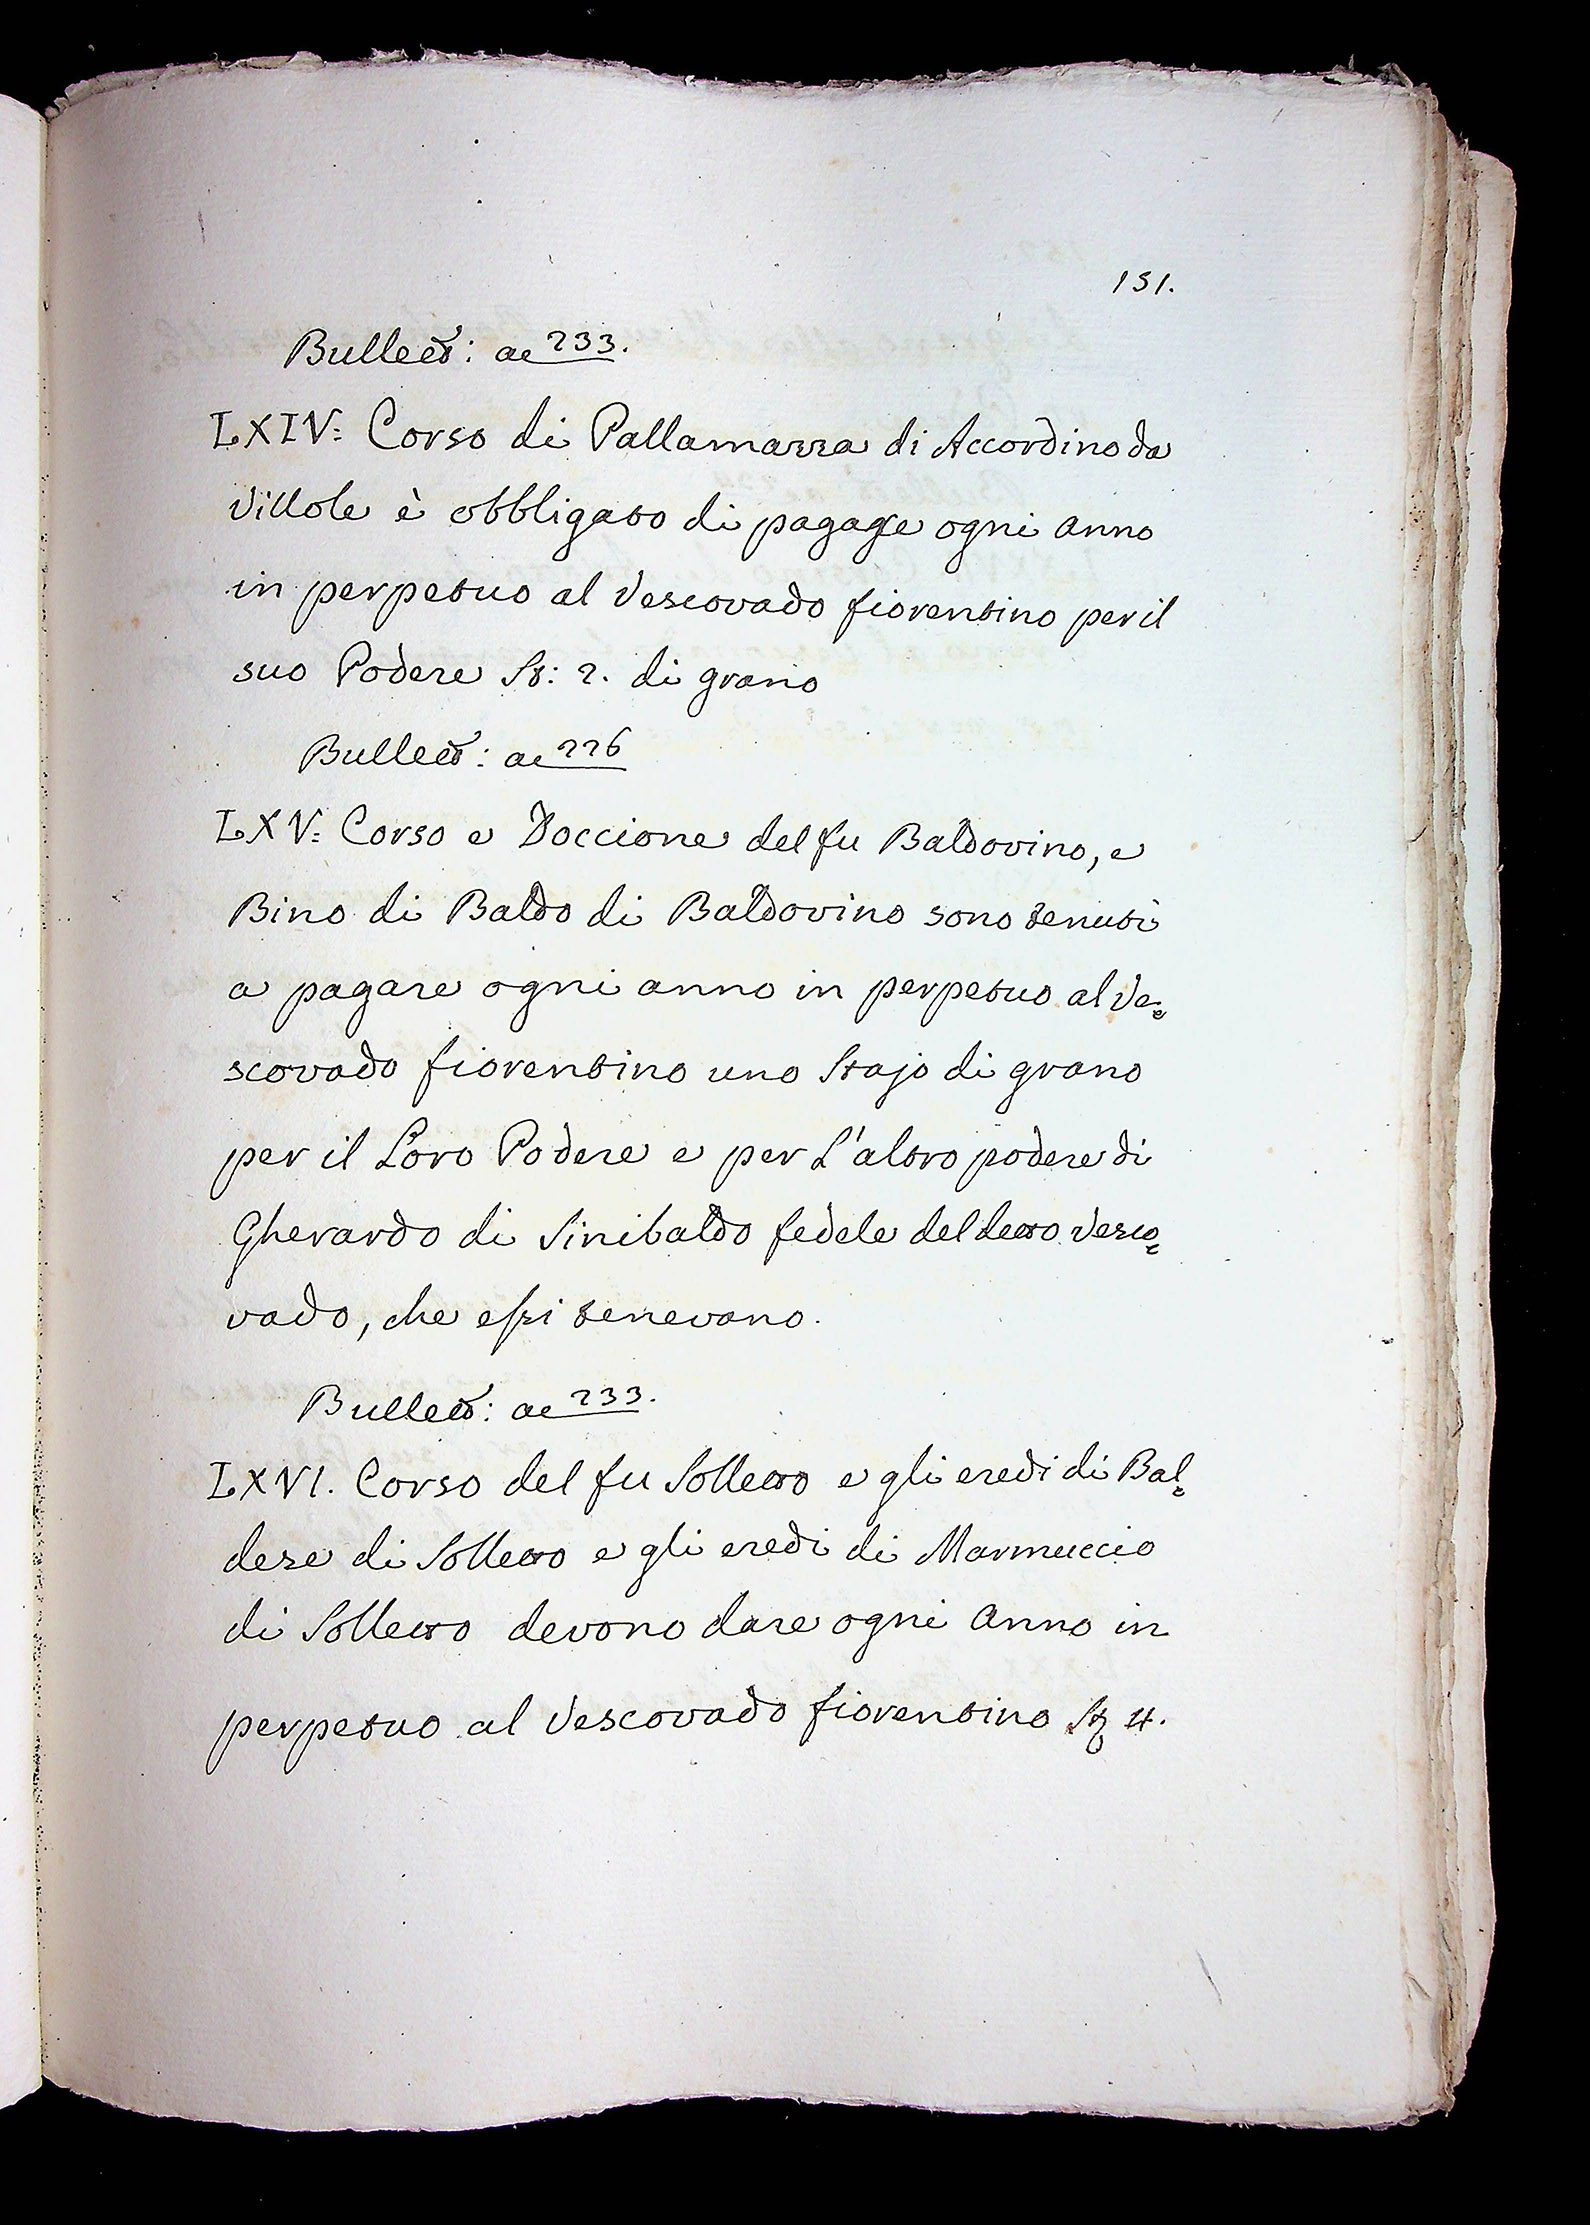 151.
Bullett: ac 233.
LXIV: Corso di Pallamazza di Accordino da
Villole è obbligato di pagage ogni anno
in perpetuo al Vescovado fiorentino per il
suo Podere St: 2. di grano
Bullett: ac 226
LXV: Corso e Doccione del fu Baldovino, e
Bino di Baldo di Baldovino sono tenuti
a pagare ogni anno in perpetuo al Ve=
scovado fiorentino uno Stajo di grano
per il Loro Podere e per L'altro podere di
Gherardo di Sinibaldo fedele del detto Vesco=
vado, che essi tenevano.
Bullett: ac 233.
LXVI. Corso del fu Solletto e gli eredi di Bal=
dese di Solletto e gli eredi di Marmuccio
di Solletto devono dare ogni Anno in
perpetuo al Vescovado fiorentino St 4.